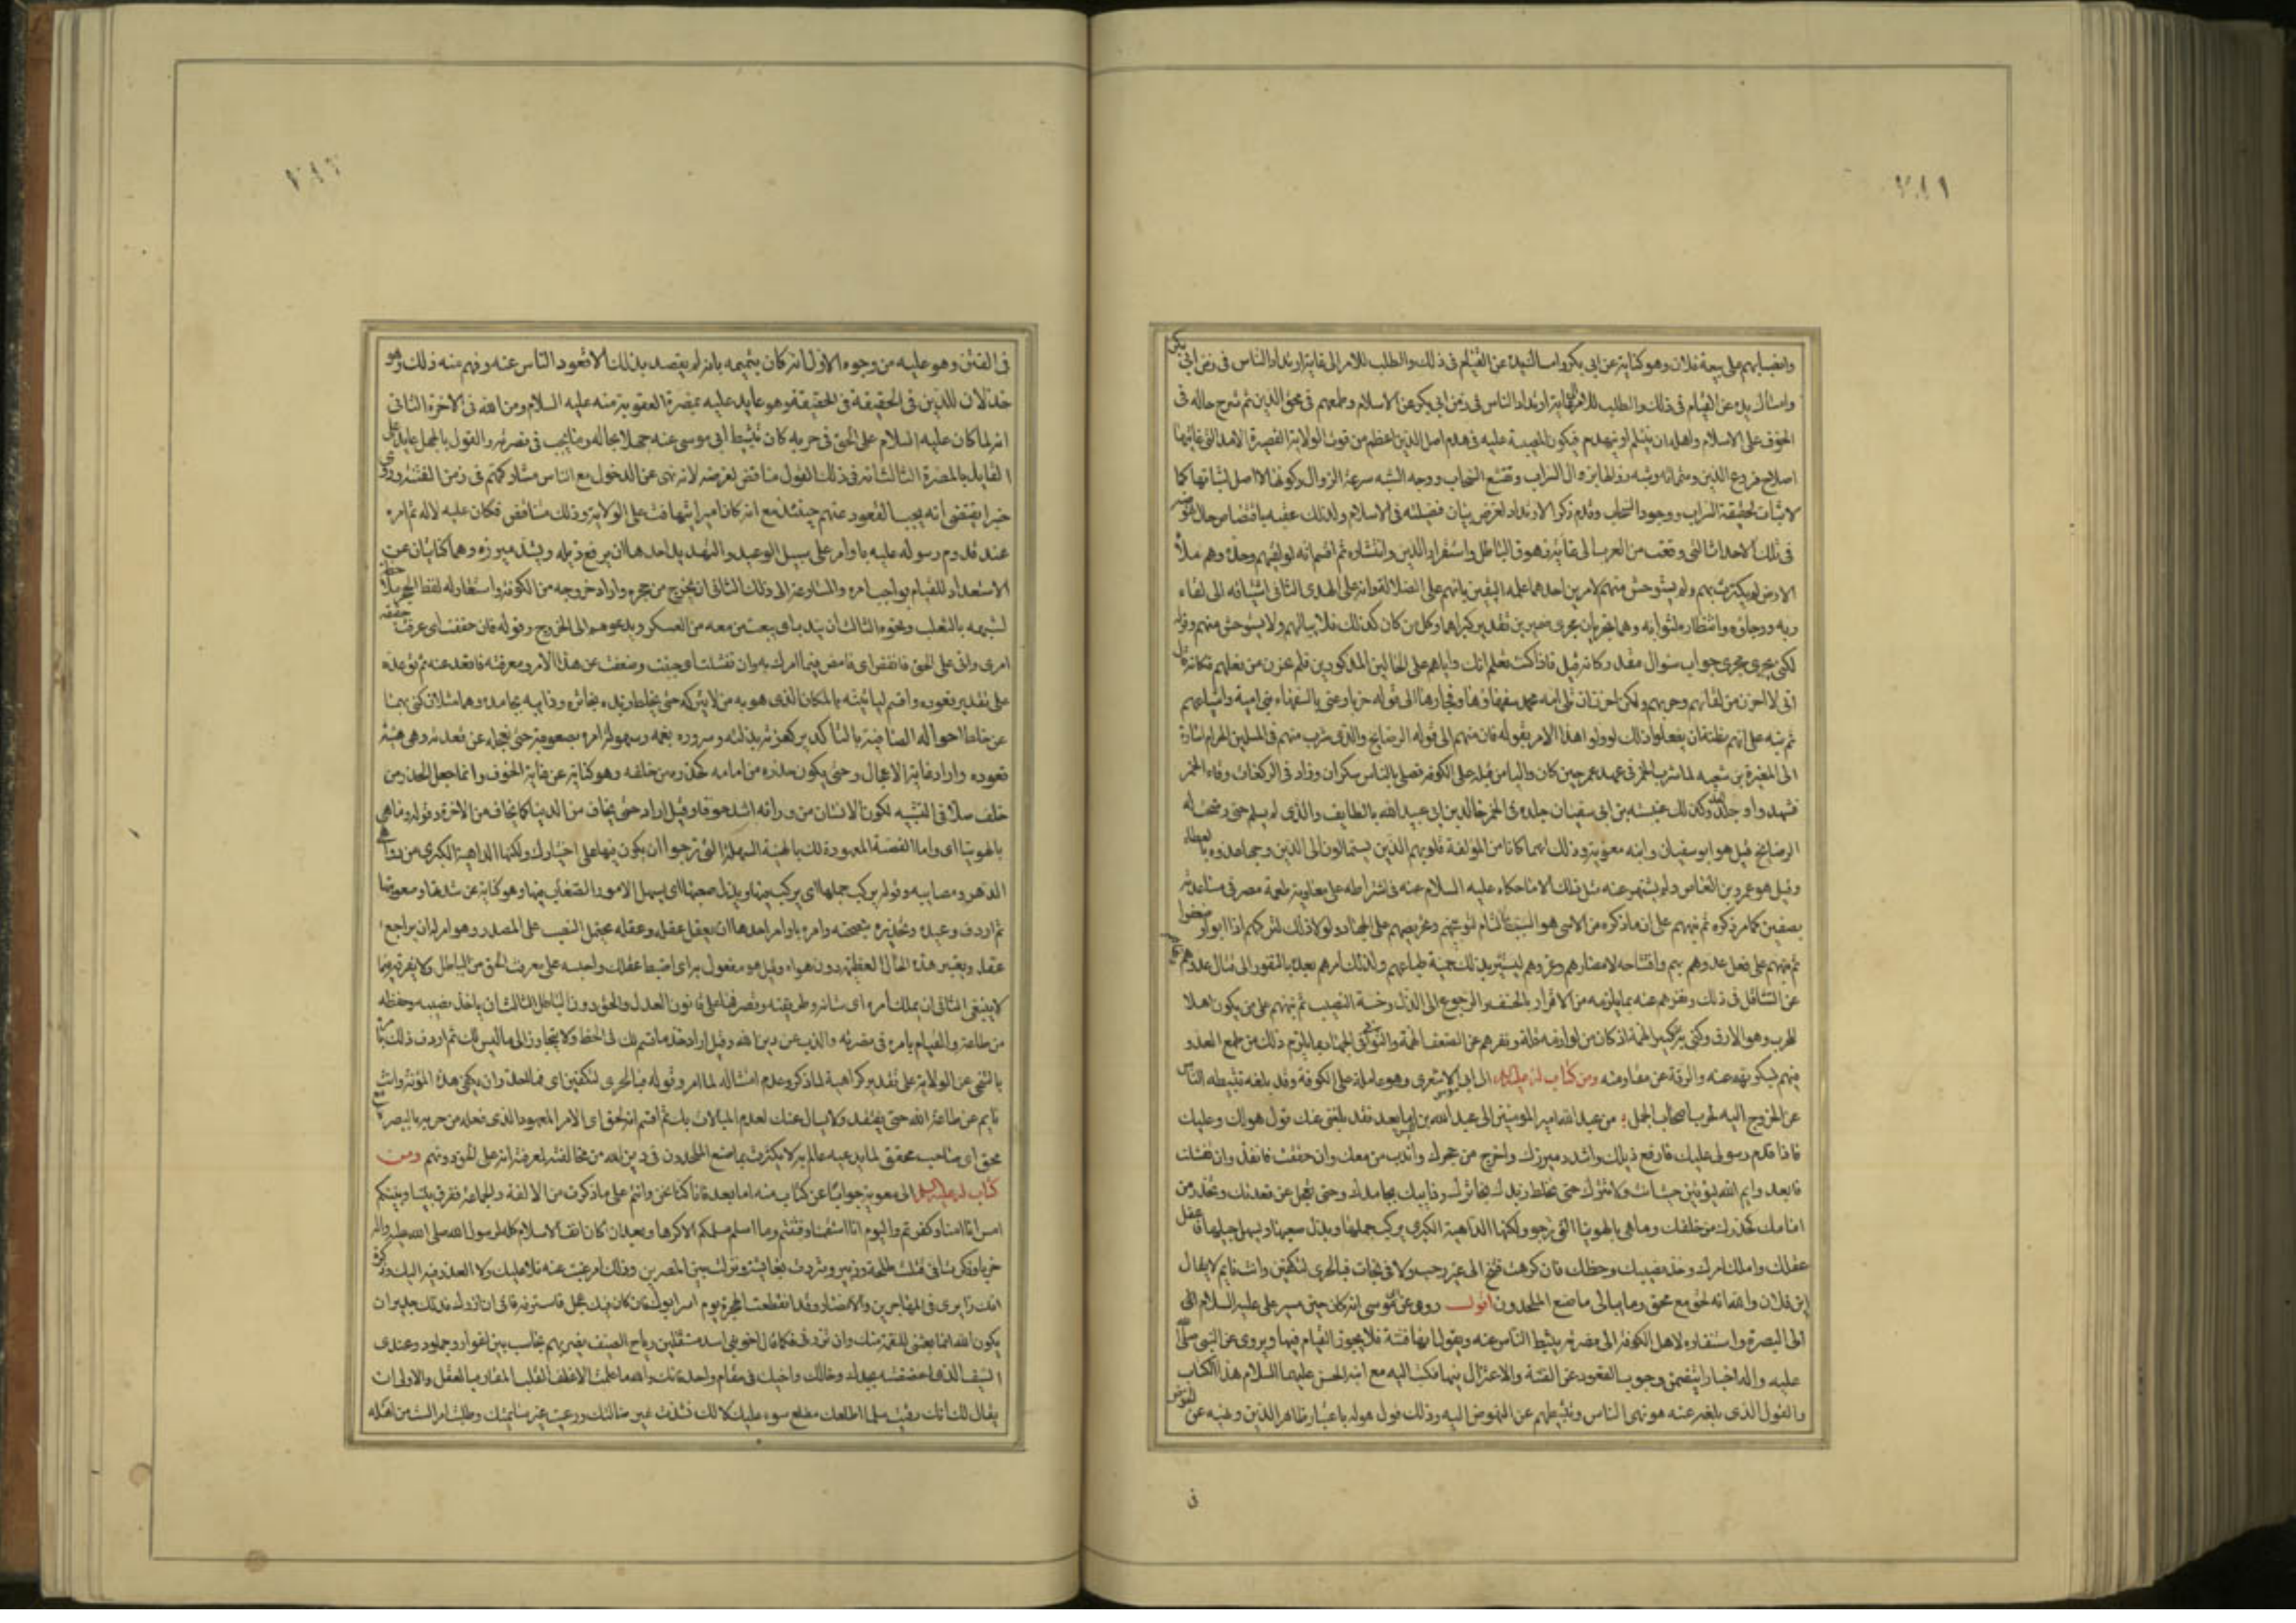 ٧٨١
وانصبابهم على بيعة فلان وهو كناية عن ابى بكر وامساكه يده عن القيام فى ذلك والطلب للامر الى غاية ارتداد الناس فى زمن ابى بكر
وامساك يده عن القيام فى ذلك والطلب للامر الى غاية ارتداد الناس فى زمن ابى بكر عن الاسلام وطمعهم فى محق الدين ثم شرح حاله فى
الخوف على الاسلام واهله ان ينثلم او ينهدم فيكون المصيبة عليه فى هدم اصل الدين اعظم من فوت الولاية القصيرة الامد التى غايتها
اصلاح فروع الدين ومتمماته وشبه زوالها بزوال السراب وتقشع السحاب ووجه الشبه سرعة الزوال وكونها لا اصل لثباتها كما
لا ثبات لحقيقة السراب ووجود السحاب وقدم ذكر الارتداد لغرض بيان فضيلته فى الاسلام ولذلك عقبه باقتصاص حال نهوضه
فى تلك الاحداث التى وقعت من العرب الى غاية زهوق الباطل واستقرار الدين وانتشاره ثم اقسم انه لو لقيهم وحده وهم ملأ
الارض لم يكترث بهم ولم يستوحش منهم لامرين احدهما علمه اليقين بانهم على الضلالة وانه على الهدى الثانى اشتياقه الى لقاء
ربه ورجاؤه وانتظاره لثوابه وهما يجريان مجرى ضميرين تقدير كبراهما وكل من كان كذلك فلا يبالى بهم ولا يستوحش منهم وقوله
لكنى يجرى مجرى جواب سؤال مقدر وكانه قيل فاذا كنت تعلم انك واياهم على الحالين المذكورين فلم تحزن من فعلهم فكانه قال
انى لا احزن من لقائهم وحربهم ولكن احزن ان تلى امة محمد سفهاؤها وفجارها الى قوله حربا وعنى بالسفهاء بنى امية واشياعهم
ثم نبه على انهم مظنة ان يفعلوا ذلك لو ولوا هذا الامر بقوله فان منهم الى قوله الرضايخ والذى شرب منهم فى المسلمين الحرام اشارة
الى المغيرة بن شعبه لما شرب الخمر فى عهد عمر حين كان واليا من قبله على الكوفة فصلى بالناس سكران وزاد فى الركعات وقاء الخمر
فشهدوا وجلد الحد وكذلك عنبسة بن ابى سفيان جلده فى الخمر خالد بن ابى عبيد الله بالطايف والذى لم يسلم حتى رضخت له
الرضايخ قيل هو ابو سفيان وابنه معوية وذلك انهما كانا من المؤلفة قلوبهم الذين يستمالون الى الدين وجهاد عدوه بالعطاء
وقيل هو عمرو بن العاص ولم يشتهر عنه مثل ذلك الا ما حكاه عليه السلام عنه فى اشتراطه على معاوية طعمة مصر فى مساعدته
بصفين كما مر ذكره ثم نبههم على ان ما ذكره من الاسى هو السبب التام لتوبيخهم وتحريضهم على الجهاد ولولا ذلك لتركهم اذا ابوا وضعفوا
ثم نبههم على فعل عدوهم بهم وافتتاحه لامصارهم وغزوهم ليستثير بذلك حمية طباعهم ولذلك امرهم بعده بالنفور الى قتال عدوهم ونهاهم
عن التثاقل فى ذلك ونفرهم عنه بما يلزمه من الاقرار بالخسف والرجوع الى الذل وخسة النصيب ثم نبههم على من يكون اهلا
للحرب وهو الارق وكنى به عن كبير الهمة اذ كان من لوازمه قلة ونفرهم عن الضعف الهمة والتوانى فى الجهاد بما يلزم ذلك من طمع العدو
فيهم فيكون نومه عنه والرقة عن مقاومته ومن كتاب له عليه السلام الى ابى موسى الاشعرى وهو عامله على الكوفة وقد بلغه تثبيطه الناس
عن الخروج اليه لحرب اصحاب الجمل من عبد الله امير المؤمنين الى عبد الله بن قيس اما بعد فقد بلغنى عنك قول هو لك وعليك
فاذا قدم رسولى عليك فارفع ذيلك واشدد ميزرك واخرج من جحرك واندب من معك وان حققت فانفذ وان تفشلت
فابعد وايم الله ليؤتين حيث انت ولا تترك حتى يخلط زبدك بخاثرك وذايبك بجامدك وحتى تعجل عن قعدتك وتحذر من
امامك كحذرك من خلفك وما هى بالهوينا التى ترجو ولكنها الداهية الكبرى يركب جملها ويذل صعبها ويسهل جبلها فاعقل
عقلك واملك امرك وخذ نصيبك وحظك فان كرهت فتنح الى غير رحب ولا فى نجاة فبالحرى لتكفين وانت نايم لا يقال
اين فلان والله انه لحق مع محق وما يبالى ما صنع الملحدون اقول روى عن ابى موسى انه كان حين مسير على عليه السلام الى
الى البصرة واستنفاره لاهل الكوفة الى نصرته يثبط الناس عنه ويقول انها فتنة فلا يجوز القيام فيها ويروى عن النبى صلى الله
عليه واله اخبارا يتضمن وجوب القعود عن الفتنة والاعتزال فيها فكتب اليه مع ابنه الحسن عليهما السلام هذا الكتاب
والقول الذى بلغه عنه هو نهى الناس وتثبيطهم عن النهوض اليه وذلك قول هو له باعتبار ظاهر الدين ونهيه عن الخوض
فى
٧٨٢
فى الفتن وهو عليه من وجوه الاول انه كان يتهمه بانه لم يقصد بذلك الا قعود الناس عنه وفهم منه ذلك وهو
خذلان للدين فى الحقيقة وهو عايد عليه بمضرة العقوبة منه عليه السلام ومن الله فى الاخرة الثانى
انه لما كان عليه السلام على الحق فى حربه كان تثبيط ابى موسى عنه جهلا بحاله وما يجب فى نصرته والقول بالجهل عايد على
القايل بالمضرة الثالث انه فى ذلك القول مناقض لغرضه لانه نهى عن الدخول مع الناس ومشاركتهم فى زمن الفتنة وروى
خبرا يقتضى انه يجب القعود عنهم حينئذ مع انه كان اميرا يتهافت على الولاية وذلك متناقض فكان عليه لا له ثم امره
عند قدوم رسوله عليه باوامر على سبيل الوعيد والتهديد احدها ان يرفع ذيله ويشد ميزره وهما كنايتان عن
الاستعداد للقيام بواجب امره والمسارعة الى ذلك الثانى ان يخرج من جحره واراد خروجه من الكوفة واستعار له لفظ الجحر ملاحظة
لشبهه بالثعلب ونحوه الثالث ان يندب اى يبعث من معه من العسكر ويدعوهم الى الخروج وقوله فان حققت اى عرفت حقيقة
امرى وانى على الحق فانفذ اى فامض فيما امرك به وان تفشلت اى جبنت وضعفت عن هذا الامر ومعرفته فاقعد عنه ثم توعده
على تقدير قعوده واقسم ليأتينه بالمكان الذى هو به من لا يتركه حتى يخلط زبده بخاثره وذايبه بجامده وهما مثلان كنى بهما
عن خلط احواله الصافية بالتكدير كعزته بذلته وسروره بغمه وسهولة امره بصعوبته حتى يعجله عن قعدته وهى هيئة
قعوده واراد غاية الاعجال وحتى يكون حذره من امامه كحذره من خلفه وهو كناية عن غاية الخوف وانما جعل الحذر من
خلف اصلا فى التشبيه لكون الانسان من ورائه اشد خوفا وقيل اراد حتى يخاف من الدنيا كما يخاف من الاخرة وقوله وما هى
بالهوينا اى وما القصة المعهودة لك بالهينة السهلة التى ترجوا ان يكون فيها على اختيارك ولكنها الداهية الكبرى من دواهى
الدهر ومصايبه وقوله يركب جملها اى يركب فيها ويذل صعبها اى يسهل الامور الصعاب فيها وهو كناية عن شدتها وصعوبتها
ثم اردف وعيده وتحذيره بنصيحته وامره باوامر احدها ان يعقل عقله وعقله يحتمل النصب على المصدر وهو امر له ان يراجع
عقله ويعتبر هذه الحال العظيمة دون هواه وقيل هو مفعول به اى اضبط عقلك واحبسه على معرفة الحق من الباطل ولا يفرقه فيما
لا ينبغى الثانى ان يملك امره اى شانه وطريقته ويصرفها على قانون العدل والحق دون الباطل الثالث ان ياخذ نصيبه وحظه
من طاعته والقيام بامره فى نصرته والذب عن دين الله وقيل اراد خذ ما قسم لك من الحظ ولا يتجاوز الى ما ليس لك ثم اردف ذلك
بالتنحى عن الولاية على تقدير كراهية لما ذكر وعدم امتثاله لما امر وقوله فبالحرى لتكفين اى فما اخلقك ان يكفى هذه المؤنة وانت
نايم عن طاعة الله حتى يفتقد ولا يسال عنك لعدم المبالات بك ثم اقسم انه لحق اى الامر المعهود الذى فعله من حربه بالبصرة
محق اى صاحب محقق لما يدعيه عالم به لا يكترث بما صنع الملحدون فى دين الله من مخالفته لمعرفته انه على الحق دونهم ومن
كتاب له عليه السلام الى معوية جوابا عن كتاب منه اما بعد فانا كنا نحن وانتم على ما ذكرت من الالفة والجماعة ففرق بيننا وبينكم
امس انا امنا وكفرتم واليوم انا استقمنا وفتنتم وما اسلم مسلمكم الا كرها وبعد ان كان انف الاسلام كله لرسول الله صلى الله عليه واله
حربا وذكرت انى قتلت طلحة والزبير وشردت بعايشة ونزلت بين المصرين وذلك امر غبت عنه فلا عليك ولا العذر فيه اليك وذكرت
انك زايرى فى المهاجرين والانصار وقد انقطعت الهجرة يوم اسر ابوك فان كان فيك عجل فاسترفه فانى ان ازرك فذلك جدير ان
يكون الله انما بعثنى للنقمة منك وان تزرنى فكما قال اخو بنى اسد مستقبلين رياح الصيف تضربهم بحاصب بين اغوار وجلمود وعندى
السيف الذى اعضضته بجدك وخالك واخيك فى مقام واحد فانك والله ما علمت الاغلف القلب المقارب العقل والاولى ان
يقال لك انك رقيت سلما اطلعك مطلع سوء عليك لا لك نشدت غير ضالتك ورعيت غير سايمتك وطلبت امرا لست من اهله